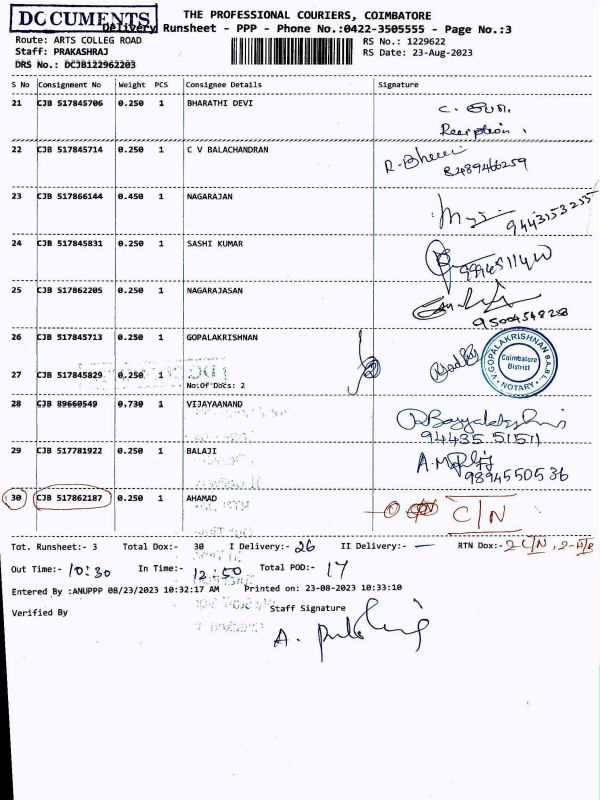 DOCUMENTS
THE PROFESSIONAL COURIERS, COIMBATORE
Delivery Runsheet - PPP - Phone No.:0422-3505555 - Page No.:3
Route: ARTS COLLEG ROAD
RS No.: 1229622
Staff: PRAKASHRAJ
RS Date: 23-Aug-2023
DRS No.: DCJB122962203
S No Consignment No Weight PCS Consignee Details Signature
21 CJB 517845706 0.250 1 BHARATHI DEVI
Reception
22 CJB 517845714 0.250 1 C V BALACHANDRAN
8489466259
23 CJB 517866144 0.450 1 NAGARAJAN
9443153255
24 CJB 517845831 0.250 1 SASHI KUMAR
25 CJB 517862205 0.250 1 NAGARAJASAN
9500454828
26 CJB 517845713 0.250 1 GOPALAKRISHNAN
V.GOPALAKRISHNAN B.A.B.L.
Coimbatore
District
NOTARY
27 CJB 517845829 0.250 1
No.Of Docs: 2
28 CJB 89660549 0.730 1 VIJAYAANAND
94435 51511
29 CJB 517781922 0.250 1 BALAJI
9894550536
30 CJB 517862187 0.250 1 AHAMAD
C/N
Tot. Runsheet:- 3 Total Dox:- 30 I Delivery:- 26 II Delivery:- — RTN Dox:- 2 C/N, 2-A/R
Out Time:- 10:30 In Time:- 12:50 Total POD:- 17
Entered By :ANUPPP 08/23/2023 10:32:17 AM Printed on: 23-08-2023 10:33:10
Verified By Staff Signature